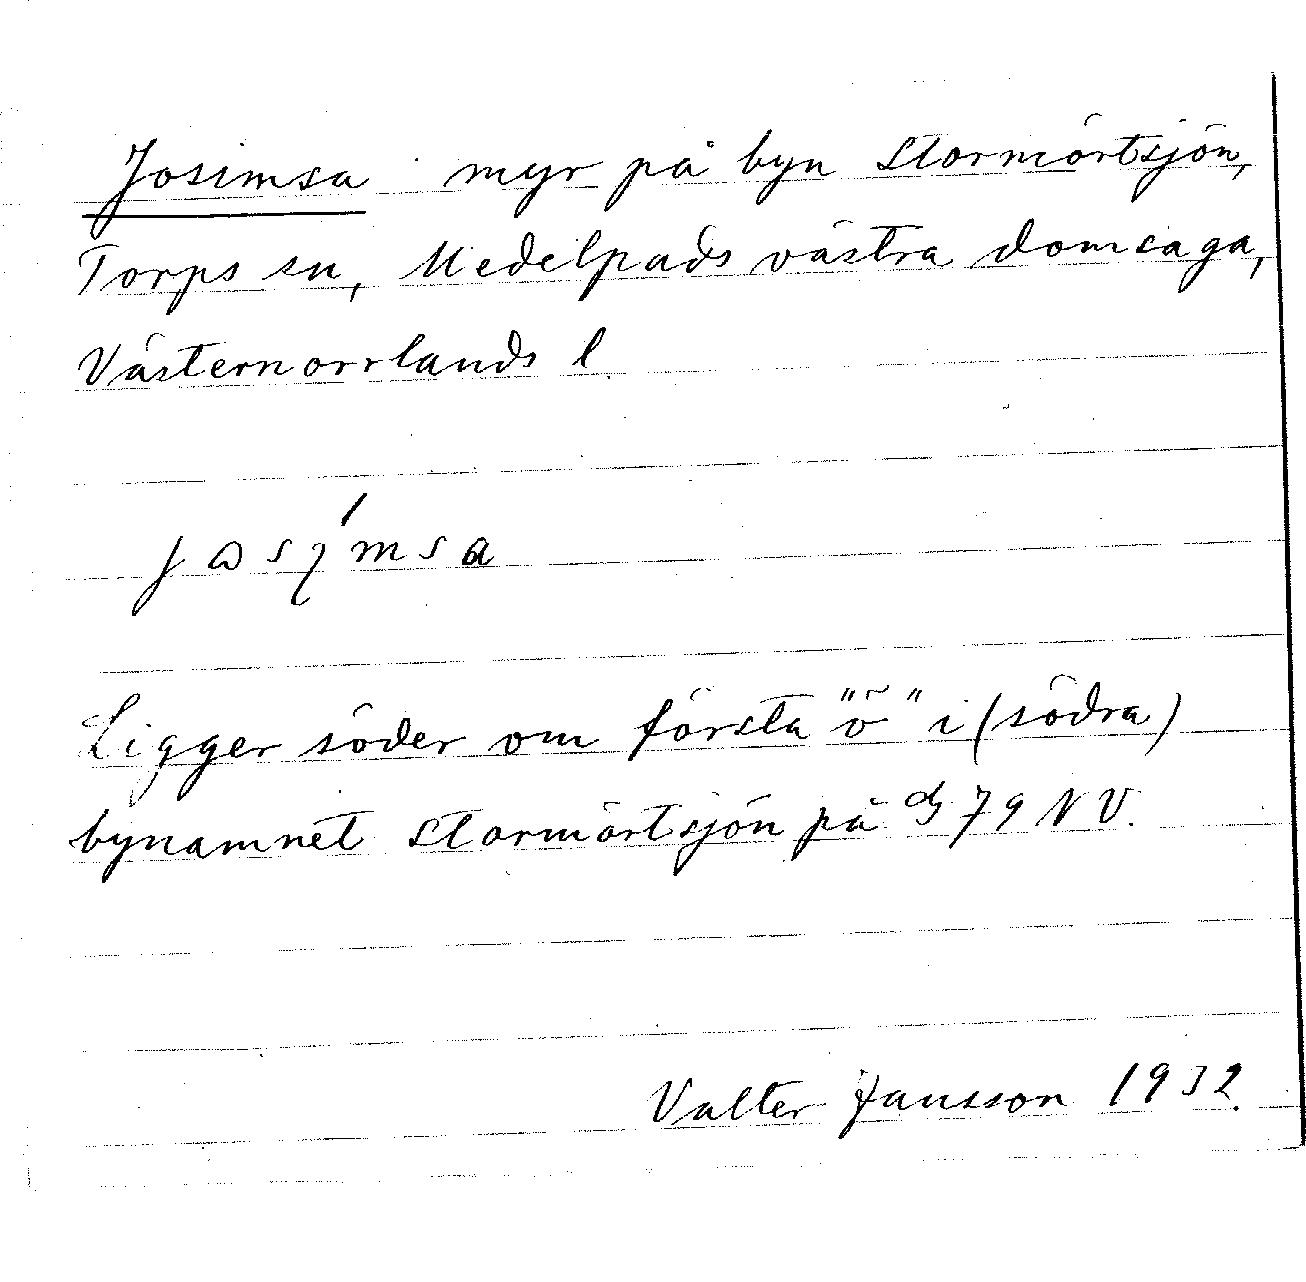 Josimsa myr på byn Stormörtsjön,
Torps sn, Medelpads västra domsaga,
Västernorrlands l
Ligger söder om första "ö" i (södra)
bynamnet Stormörtsjön på 79 NV.
Valter Jansson 1932.